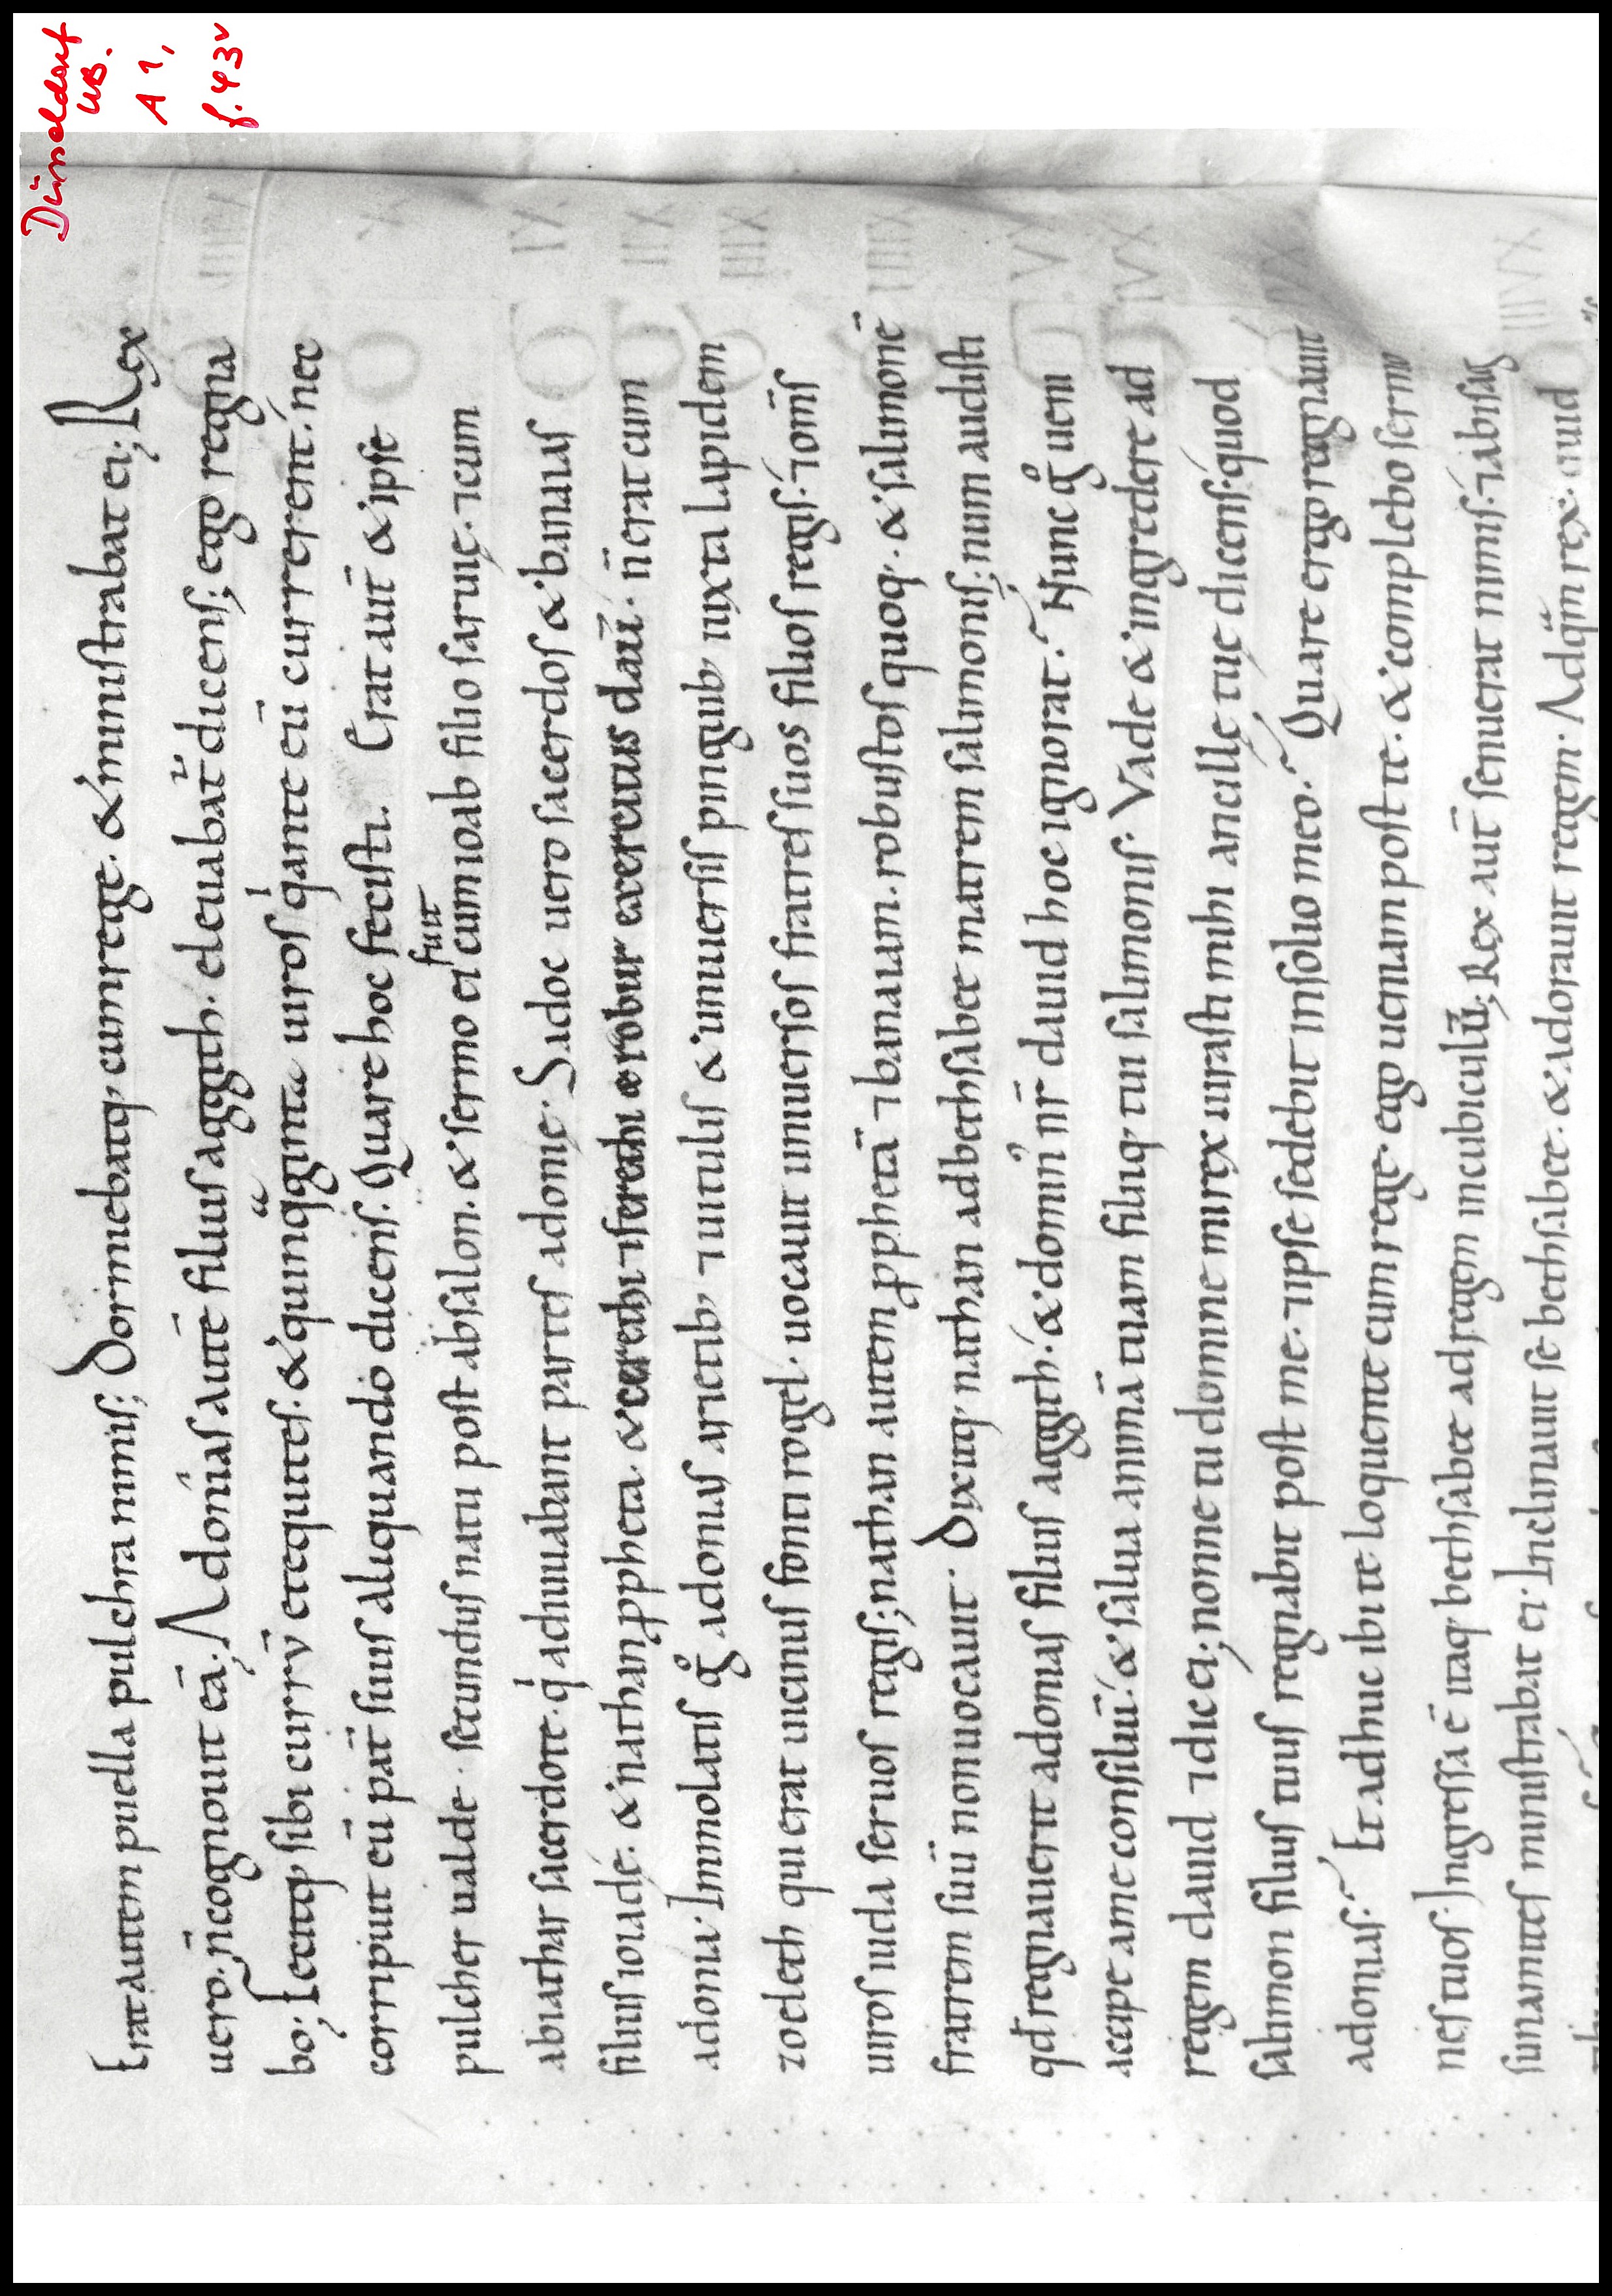 Düsseldorf
UB.
A 1,
f. 43v
Erat autem puella pulchra nimis; Dormiebatq; cum rege. & ministrabat ei; Rex
uero n̄ cognouit eā. Adonias autē filius aggith. eleuabat̄ dicens; ego regna
bo; Fecitq; sibi currū et equites. & quinq̈ginta uiros q̇ ante eū currerent. nec
corripuit eū pat̄ suus aliquando dicens. Quare hoc fecisti. Erat aut̄ & ipse
pulcher ualde. secundus natu post absalon. & sermo ei fuit cum ioab filio saruię. ⁊ cum
abiathar sacerdote. q̇ adiuuabant partes adonię. Sadoc uero sacerdos & banaias
filius ioiadę. & nathan ꝓpheta. & cerethi ⁊ ferethi & robur exercitus dauī. n̄ erat cum
adonia. Immolatis g̊ adonias arietib; ⁊ uitulis & uniuersis pinguib; iuxta lapidem
zoeleth qui erat uicinus fonti rogel. uocauit uniuersos fratres suos filios regis. ⁊ om̄is
uiros iuda seruos regis; nathan autem ꝓphetā ⁊ banaiam. ⁊ robustos quoq;. & salimonē
fratrem suū non uocauit. Dixitq; nathan ad bethsabee matrem salimonis; num audisti
qd̄ regnauerit adonias filius aggith. & domin' nr̄ dauid hoc ignorat. Nunc g̊ ueni
accipe a me consiliū. & salua animā tuam filiiq; tui salimonis. Vade & ingredere ad
regem dauid ⁊ dic ei; nonne tu domine mi rex iurasti mihi ancillę tuę dicens. quod
salimon filius tuus regnabit post me. ⁊ ipse sedebit in solio meo. Quare ergo regnauit
adonias. Et adhuc ibi te loquente cum rege. ego ueniam post te. & complebo sermo
nes tuos. Ingressa ē itaq; bethsabee ad regem in cubiculū; Rex aut̄ senuerat nimis. ⁊ abisag
sunamites ministrabat ei. Inclinauit se bethsabee. & adorauit regem. Ad q̈m rex. quid